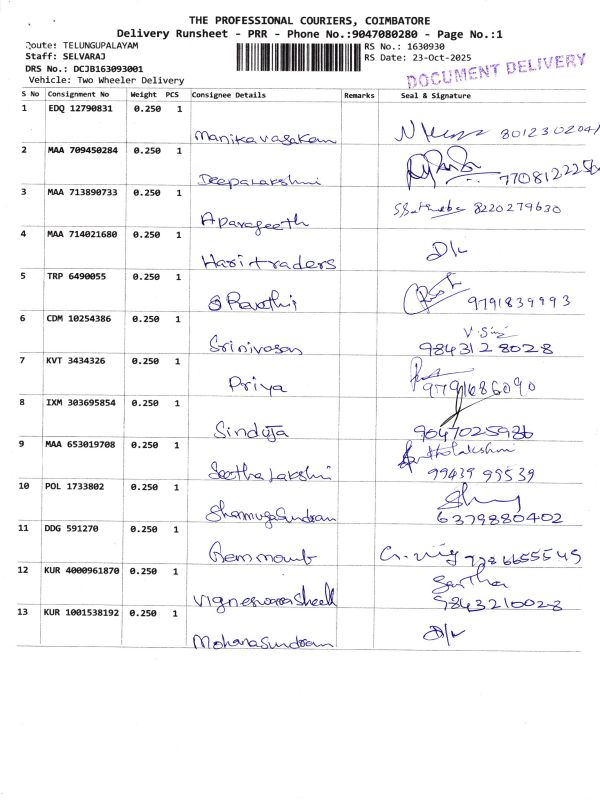 THE PROFESSIONAL COURIERS, COIMBATORE
Delivery Runsheet - PRR - Phone No.:9047080280 - Page No.:1
Route: TELUNGUPALAYAM
RS No.: 1630930
Staff: SELVARAJ
RS Date: 23-Oct-2025
DRS No.: DCJB163093001
Vehicle: Two Wheeler Delivery
DOCUMENT DELIVERY
S No Consignment No Weight PCS Consignee Details Remarks Seal & Signature
1 EDQ 12790831 0.250 1
Manikavasakam 801230204
2 MAA 709450284 0.250 1
Deepalakshmi 7708122256
3 MAA 713890733 0.250 1
Aparajeeth 8220279630
4 MAA 714021680 0.250 1
Hari traders D/K
5 TRP 6490055 0.250 1
9791839993
6 CDM 10254386 0.250 1
Srinivasan 9843128028
7 KVT 3434326 0.250 1
Priya 9791686090
8 IXM 303695854 0.250 1
Sinduja 9047025986
9 MAA 653019708 0.250 1
Seetha Lakshmi 99439 99539
10 POL 1733802 0.250 1
Shanmugasundram 6379880402
11 DDG 591270 0.250 1
12 KUR 4000961870 0.250 1
Sartha
9843210028
13 KUR 1001538192 0.250 1
Mohanasundram D/K